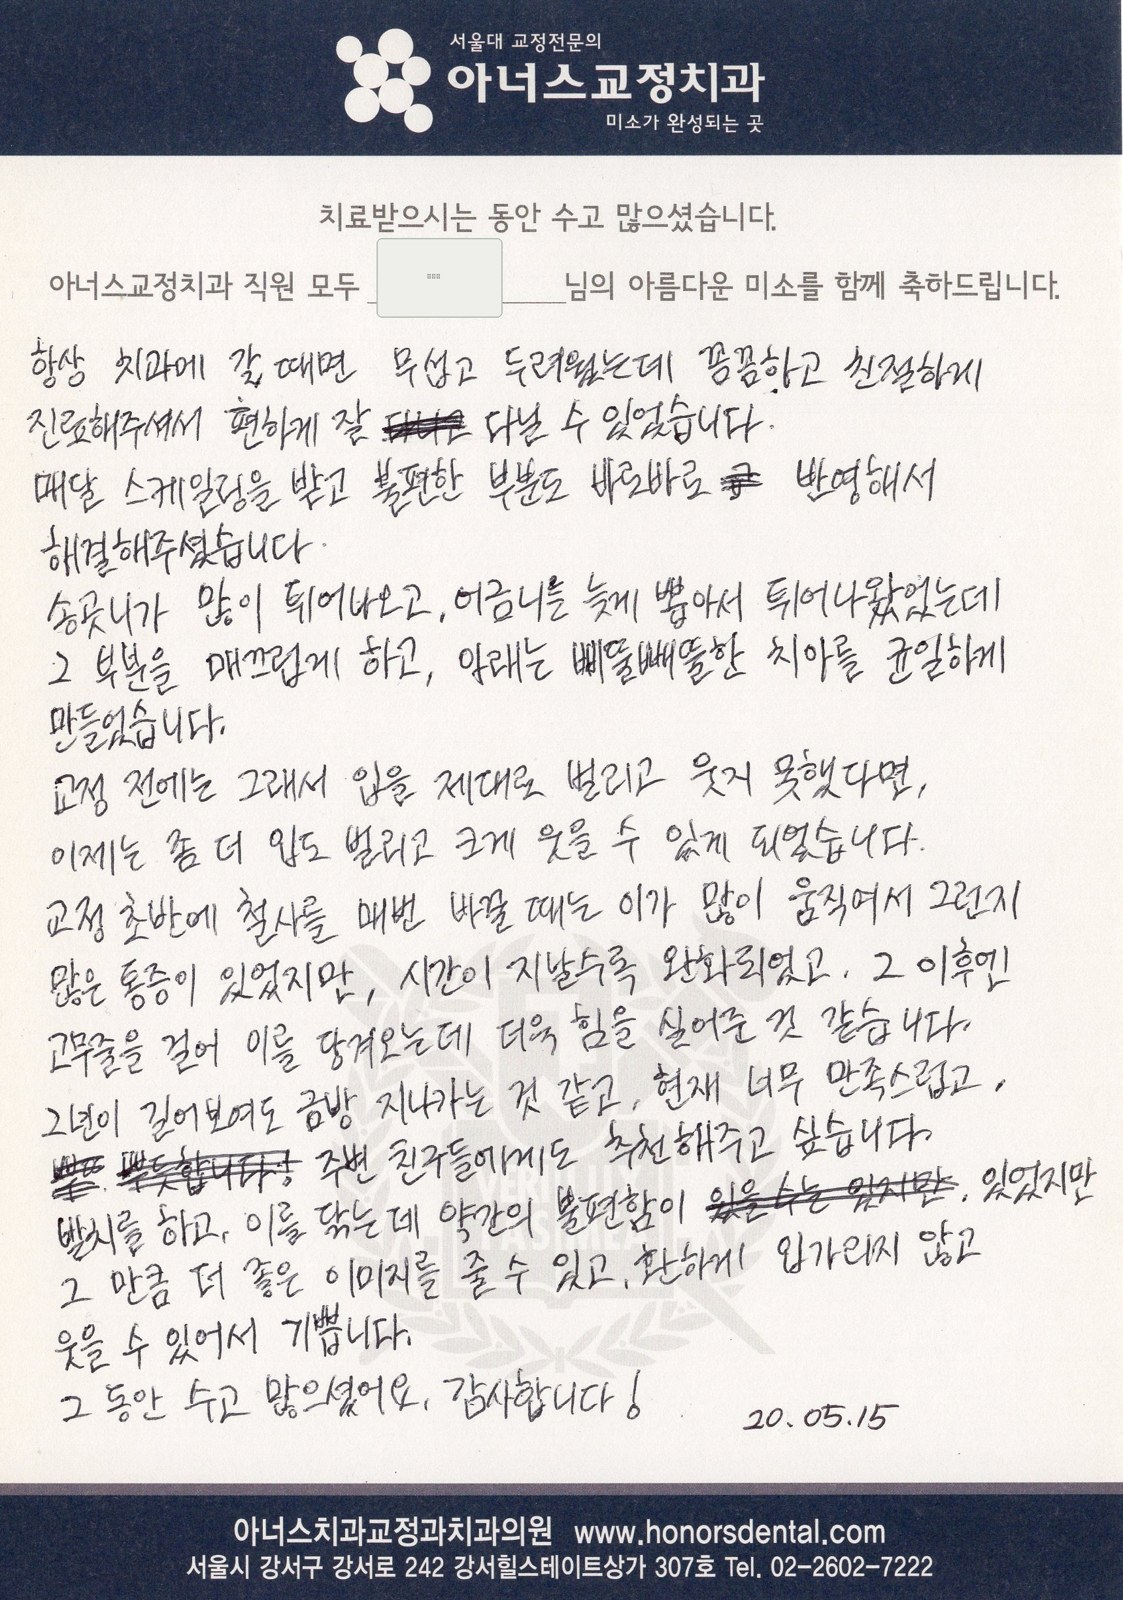 서울대 교정전문의
아너스교정치과
미소가 완성되는 곳
치료받으시는 동안 수고 많으셨습니다.
아너스교정치과 직원 모두 님의 아름다운 미소를 함께 축하드립니다.
항상 치과에 갈 때면 무섭고 두려웠는데 꼼꼼하고 친절하게
진료해주셔서 편하게 잘 다닐 수 있었습니다.
매달 스케일링을 받고 불편한 부분도 바로바로 반영해서
해결해주셨습니다.
송곳니가 많이 튀어나오고, 어금니를 늦게 뽑아서 튀어나왔었는데
그 부분을 매끄럽게 하고, 아래는 삐뚤빼뚤한 치아를 균일하게
만들었습니다.
교정 전에는 그래서 입을 제대로 벌리고 웃지 못했다면,
이제는 좀 더 입도 벌리고 크게 웃을 수 있게 되었습니다.
교정 초반에 철사를 매번 바꿀 때는 이가 많이 움직여서 그런지
많은 통증이 있었지만, 시간이 지날수록 완화되었고. 그 이후엔
고무줄을 걸어 이를 당겨오는데 더욱 힘을 실어준 것 같습니다.
2년이 길어보여도 금방 지나가는 것 같고, 현재 너무 만족스럽고.
주변 친구들에게도 추천해주고 싶습니다.
발치를 하고, 이를 닦는데 약간의 불편함이 있었지만
그 만큼 더 좋은 이미지를 줄 수 있고, 환하게 입가리지 않고
웃을 수 있어서 기쁩니다.
그 동안 수고 많으셨어요. 감사합니다!
20.05.15
VERI
TAS
MEA
아너스치과교정과치과의원 www.honorsdental.com
서울시 강서구 강서로 242 강서힐스테이트상가 307호 Tel. 02-2602-7222